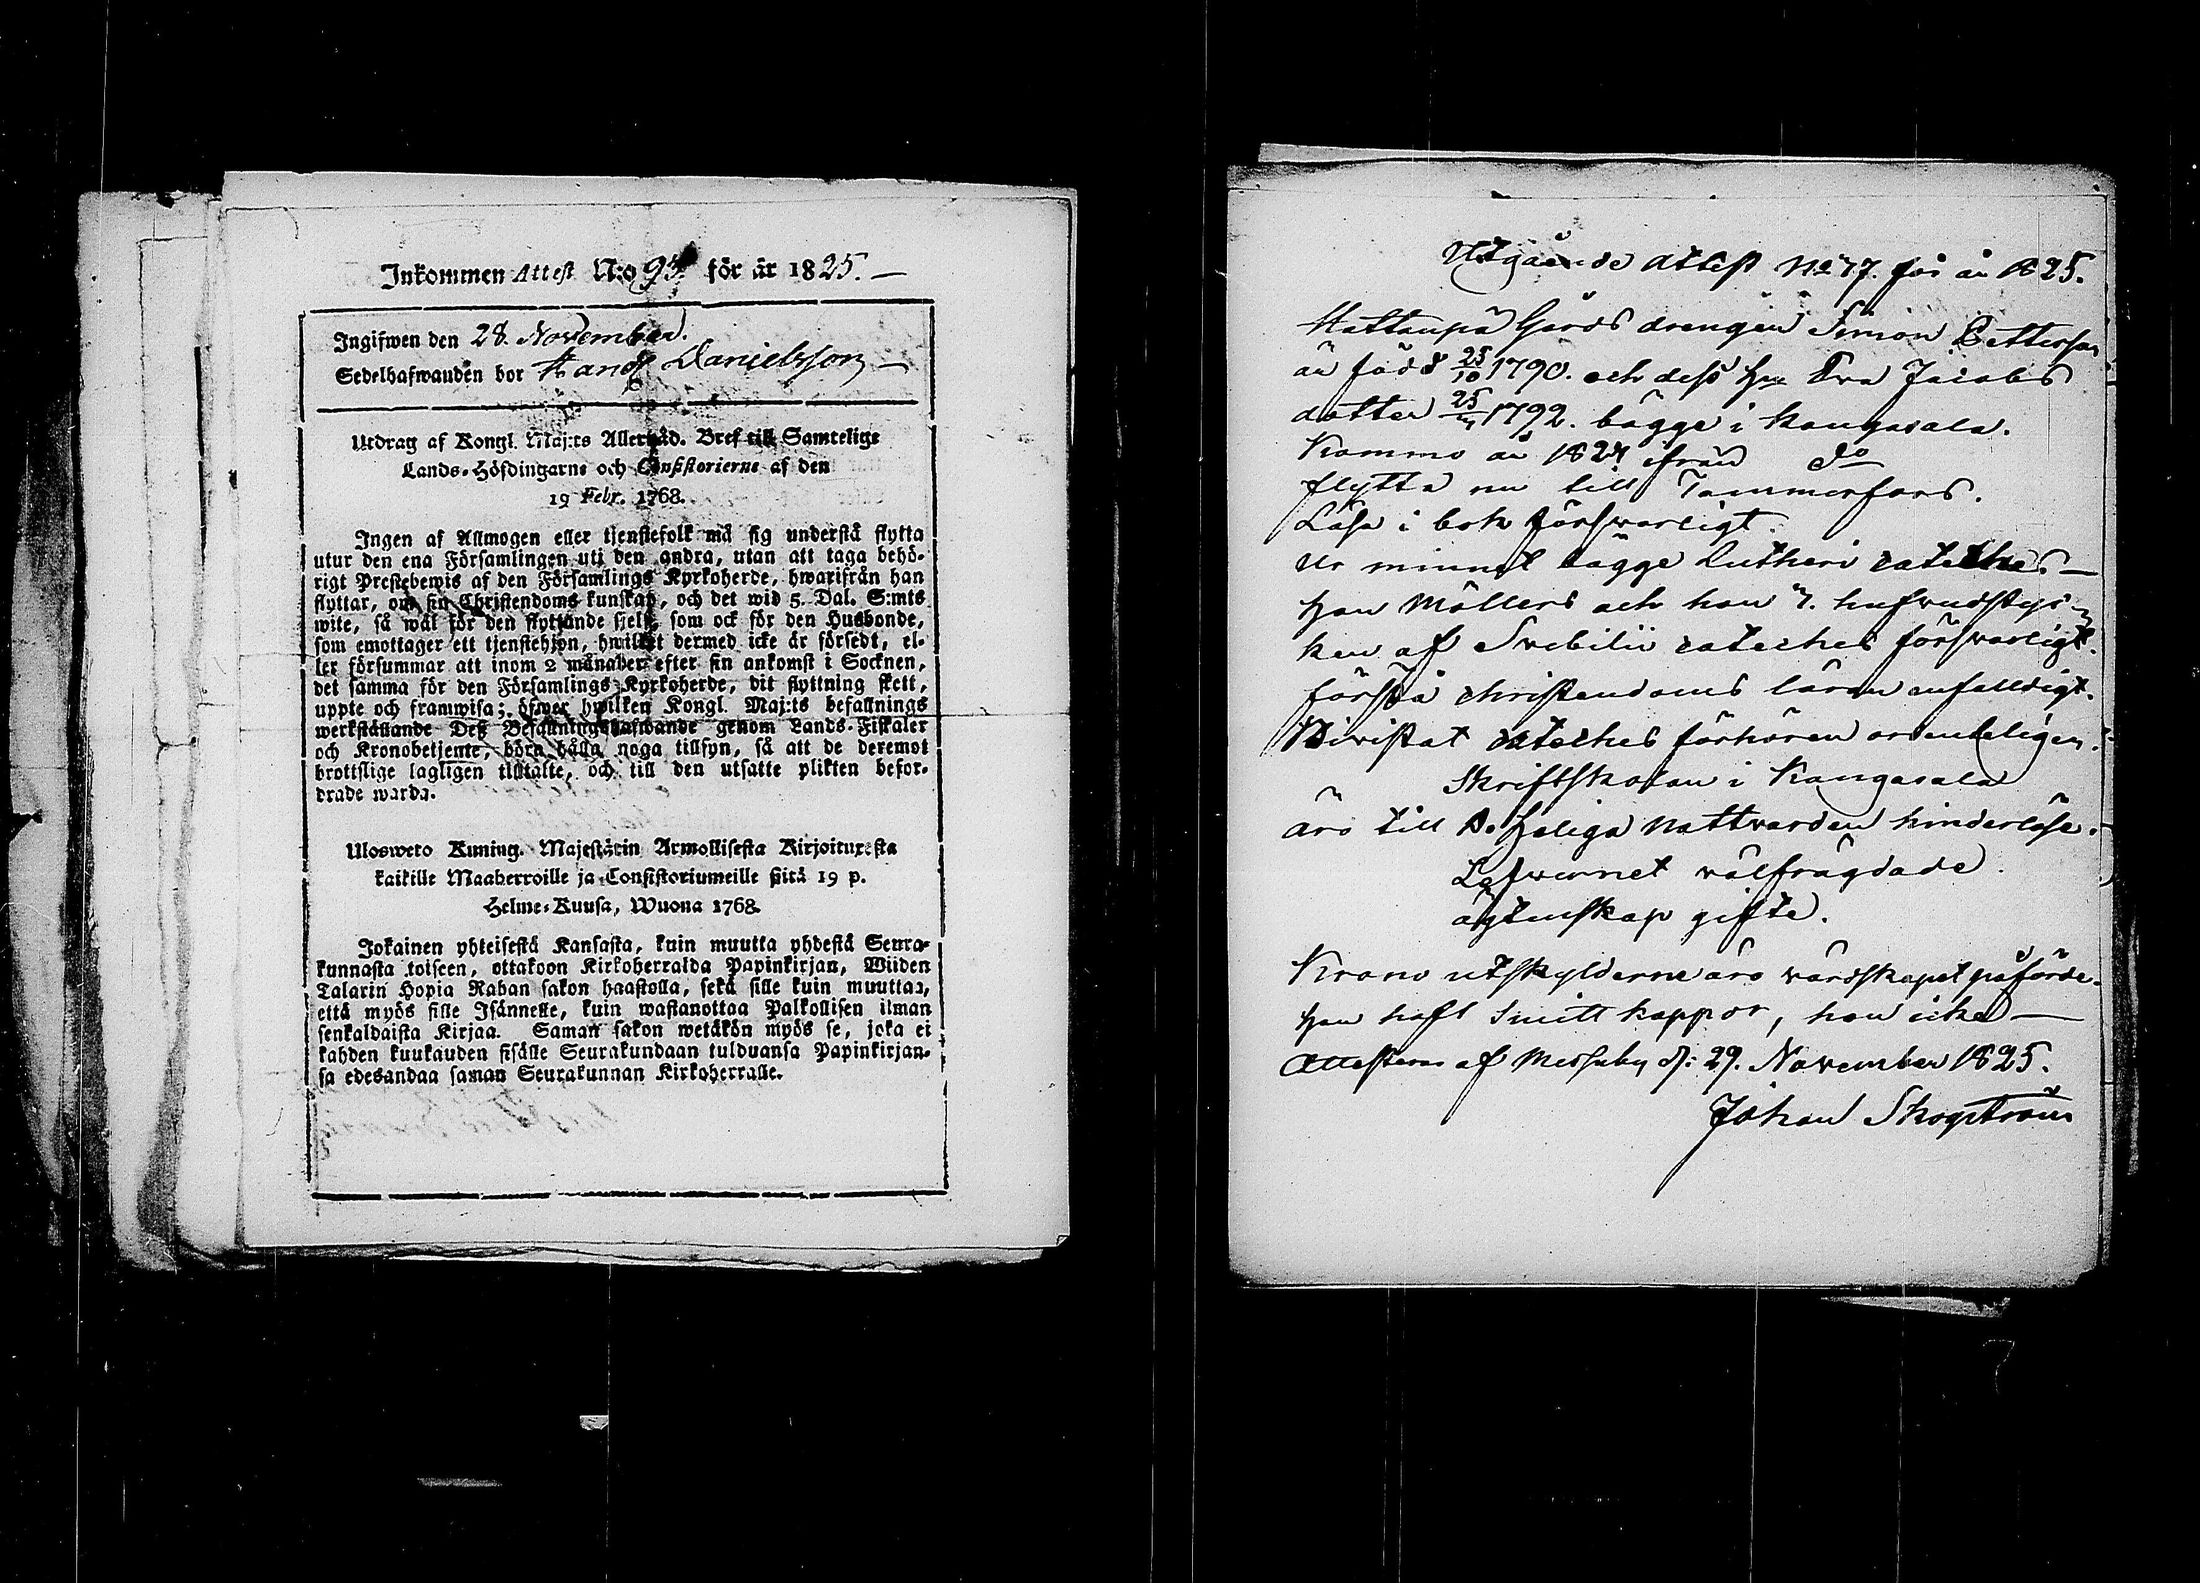 Inkommen Attest N:o 93. för år 1825. —
Ingifwen den 28. November.
Sedelhafwanden bor Hans Danielsson —
Utdrag af Kongl. Maj:ts Allernåd. Bref till Samtelige
Lands-Höfdingarne och Consistorierne af den
19 Febr. 1768.
Ingen af Allmogen eller tjenstefolk må sig understå flytta
utur den ena Församlingen uti den andra, utan att taga behö-
rigt Prestebewis af den Församlings Kyrkoherde, hwarifrån han
flyttar, om sin Christendoms kunskap, och det wid 5. Dal. S:mts
wite, så wäl för den flyttande sjelf, som ock för den Husbonde,
som emottager ett tjenstehjon, hwilket dermed icke är försedt, el-
ler försummar att inom 2 månader efter sin ankomst i Socknen,
det samma för den Församlings Kyrkoherde, dit flyttning skett,
uppte och framwisa; öfwer hwilken Kongl. Maj:ts befallnings
werkställande Deß Befallningshafwande genom Lands-Fiskaler
och Kronobetjente, böra hålla noga tillsyn, så att de deremot
brottslige lagligen tilltalte, och till den utsatte plikten befor-
drade warda.
Ulosweto Kuning. Majestätin Armollisesta Kirjoituxesta
kaikille Maaherroille ja Consistoriumeille siitä 19 p.
Helme-Kuusa, Wuona 1768.
Jokainen yhteisestä Kansasta, kuin muutta yhdestä Seura-
kunnasta toiseen, ottakoon Kirkoherralda Papinkirjan, Wiiden
Talarin Hopia Rahan sakon haastolla, sekä sille kuin muuttaa,
että myös sille Isännelle, kuin wastanottaa Palkollisen ilman
senkaldaista Kirjaa. Saman sakon wetäkön myös se, joka ei
kahden kuukauden sisälle Seurakundaan tulduansa Papinkirjan-
sa edesandaa saman Seurakunnan Kirkoherralle.
Utgående Attest No 77. för år 1825.
Hattanpä Gårds drengen Simon Pettersson
är född 25/10 1790. och dess Hu Eva Jacobs
dotter 25/ 1792. bägge i Kangasala.
Kommo år 1824 ifrån do
flytta nu till Tammerfors.
Läsa i bok försvarligt.
Ur minnet bägge Lutheri cateches. —
han Möllers och hon 7. hufvudstyc-
ken af Svebilii cateches försvarligt.
förstå christendoms läran enfalldigt.
Bivistat cateches förhören ordenteligen.
Skriftskolan i Kangasala
äro till D. Heliga Nattvarden hinderlöse.
Lefvernet välfrägdade.
ägtenskap gifte.
Krono utskylderne äro värdskapet påförde.
han haft Smitt koppor, hon icke —
Attesterar af Messuby d: 29. November 1825.
Johan Skogström